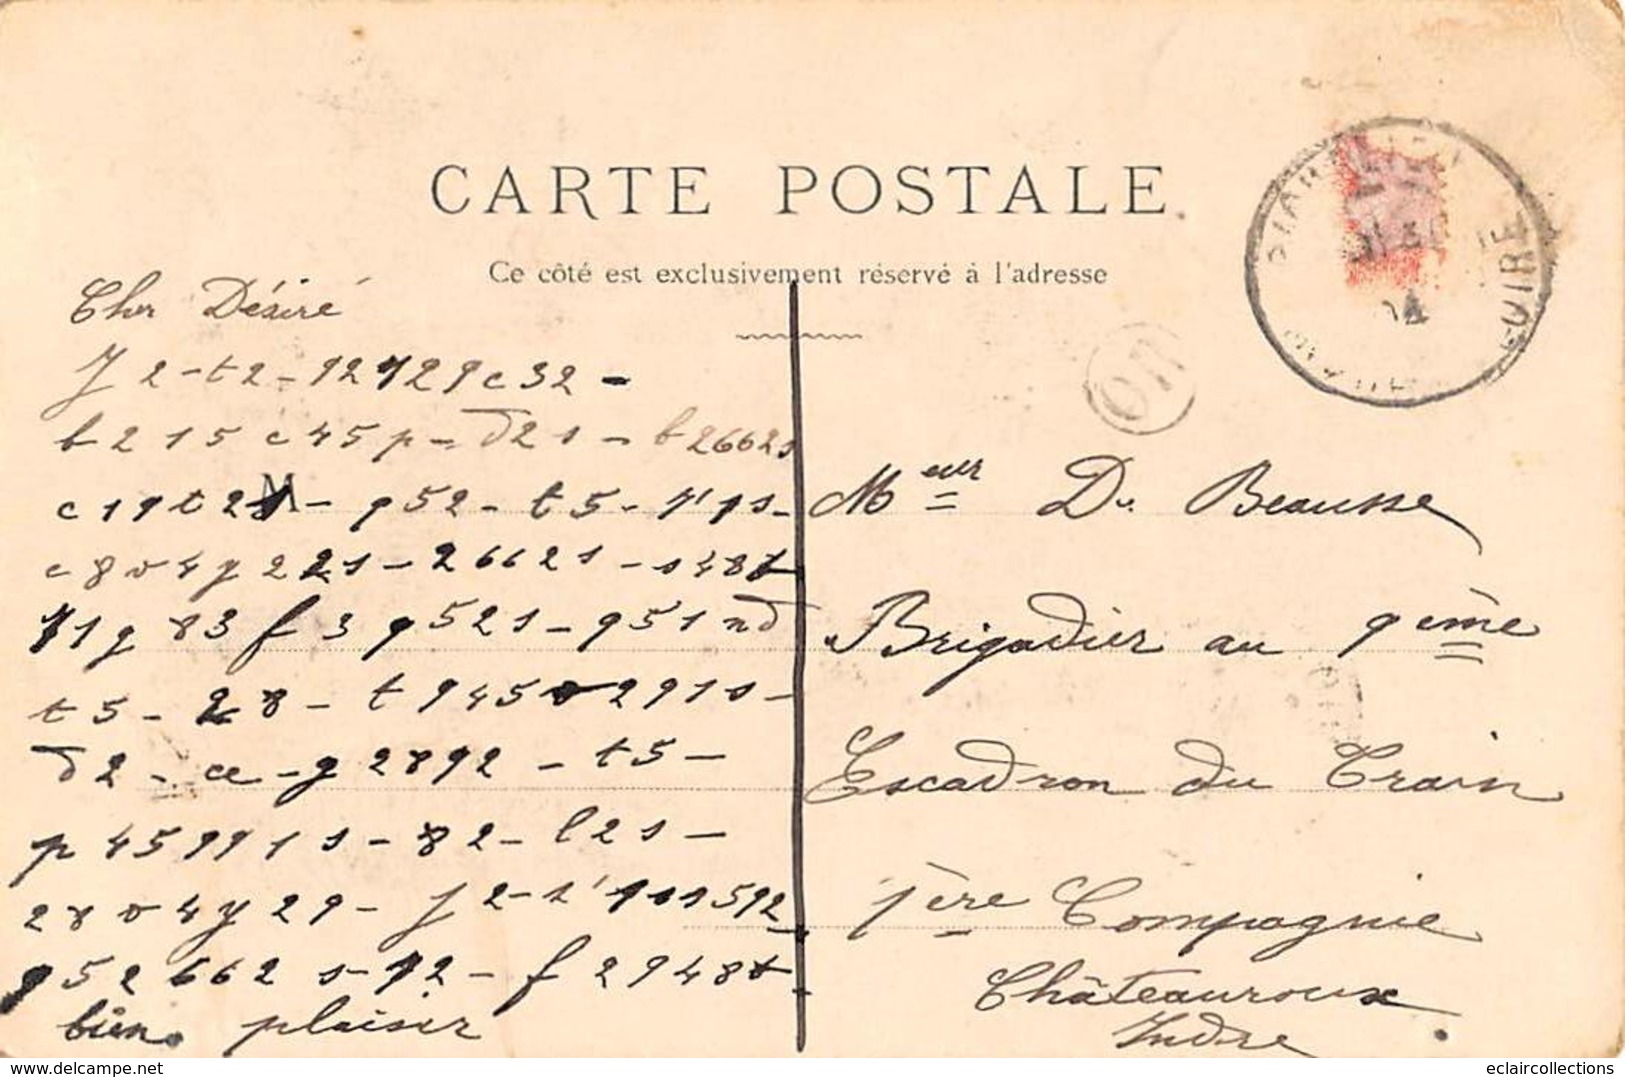 CARTE POSTALE
Ce côté est exclusivement réservé à l'adresse
LOIRE
04
OR
Cher Désiré
J 2-t2-12729c32-
b215c45p-d21-b26621
c19t21-952-t5-j'91-
c8v4y221-26621-148t
71g83f39521-951nd
t5-28-t945v2911-
d2-ce-g2892-t5-
p459911-82-l21-
28v4y29-j2-1'911592
9526621-12-f2948t
bien plaisir
Meur Du Beausse
Brigadier au 9ème
Escadron du Train
1ère Compagnie
Châteauroux
Indre
eclaircollections